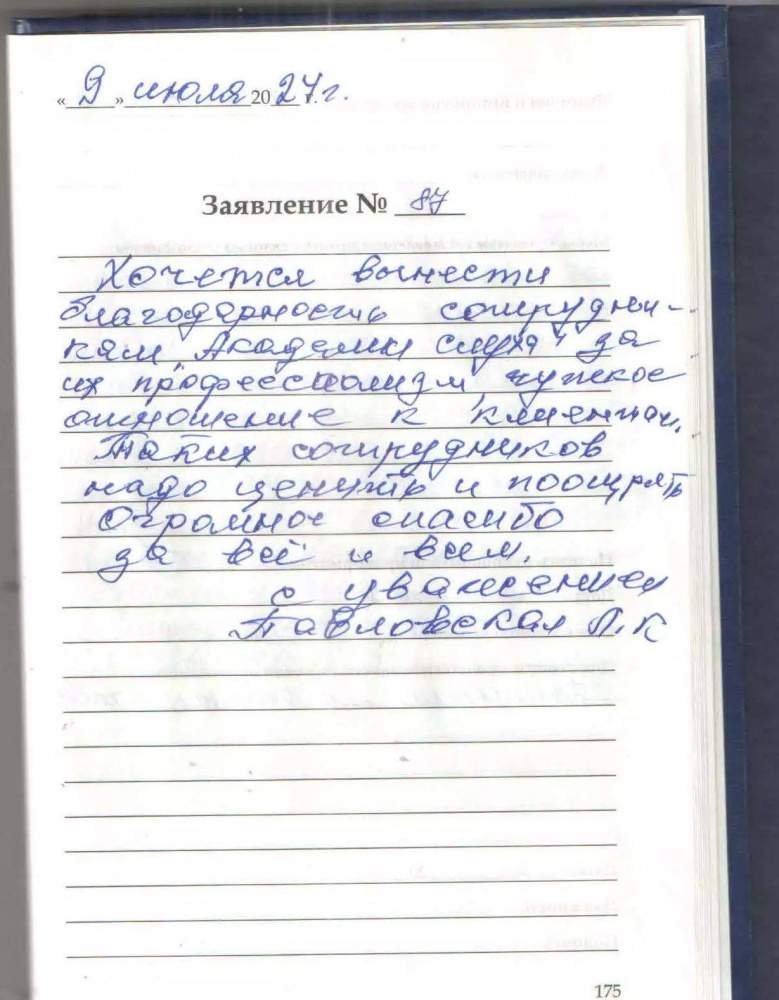 « 9 » июля 2024 г.
Заявление № 87
Хочется вынести
благодарность сотрудни-
кам "Академии слуха" за
их профессионализм, чуткое
отношение к клиентам.
Таких сотрудников
надо ценить и поощрять
Огромное спасибо
за всё и всем.
с уважением
Павловская Л.К
175